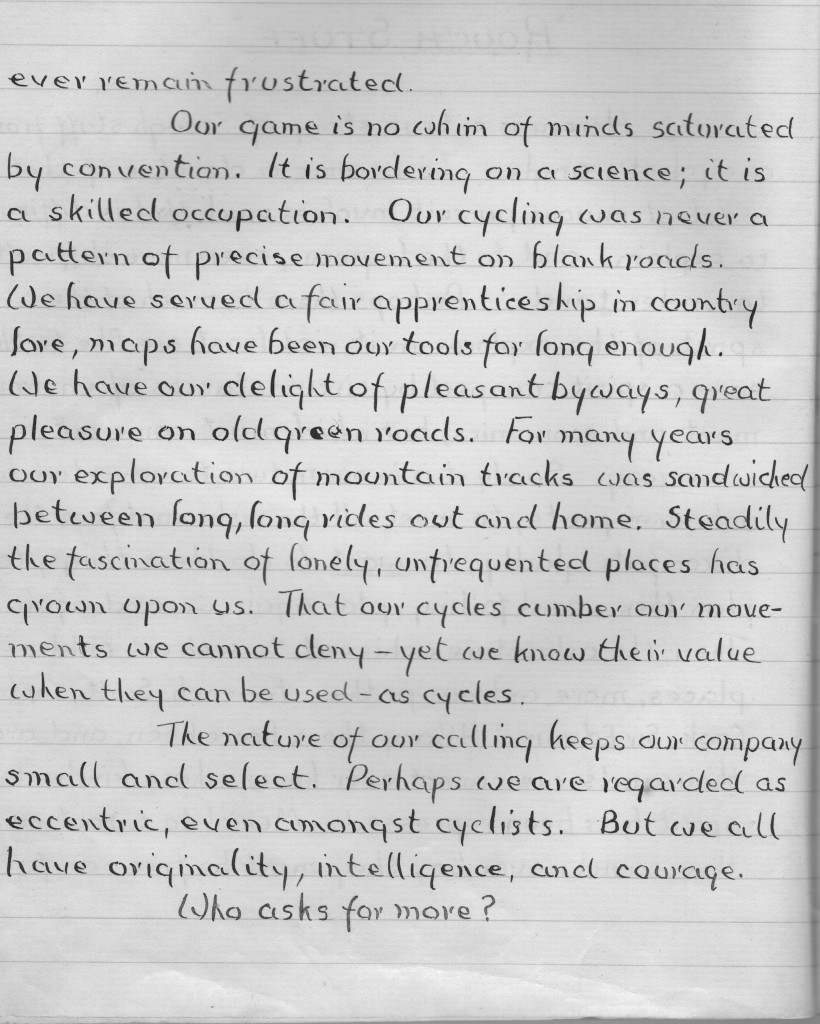 ever remain frustrated.
Our game is no whim of minds saturated
by convention. It is bordering on a science; it is
a skilled occupation. Our cycling was never a
pattern of precise movement on blank roads.
We have served a fair apprenticeship in country
lore, maps have been our tools for long enough.
We have our delight of pleasant byways, great
pleasure on old green roads. For many years
our exploration of mountain tracks was sandwiched
between long, long rides out and home. Steadily
the fascination of lonely, unfrequented places has
grown upon us. That our cycles cumber our move-
ments we cannot deny – yet we know their value
when they can be used – as cycles.
The nature of our calling keeps our company
small and select. Perhaps we are regarded as
eccentric, even amongst cyclists. But we all
have originality, intelligence, and courage.
Who asks for more?